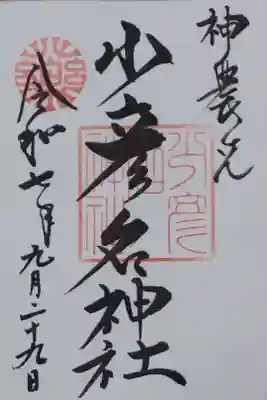 神農さん
少彦名神社
令和七年九月二十九日
藥